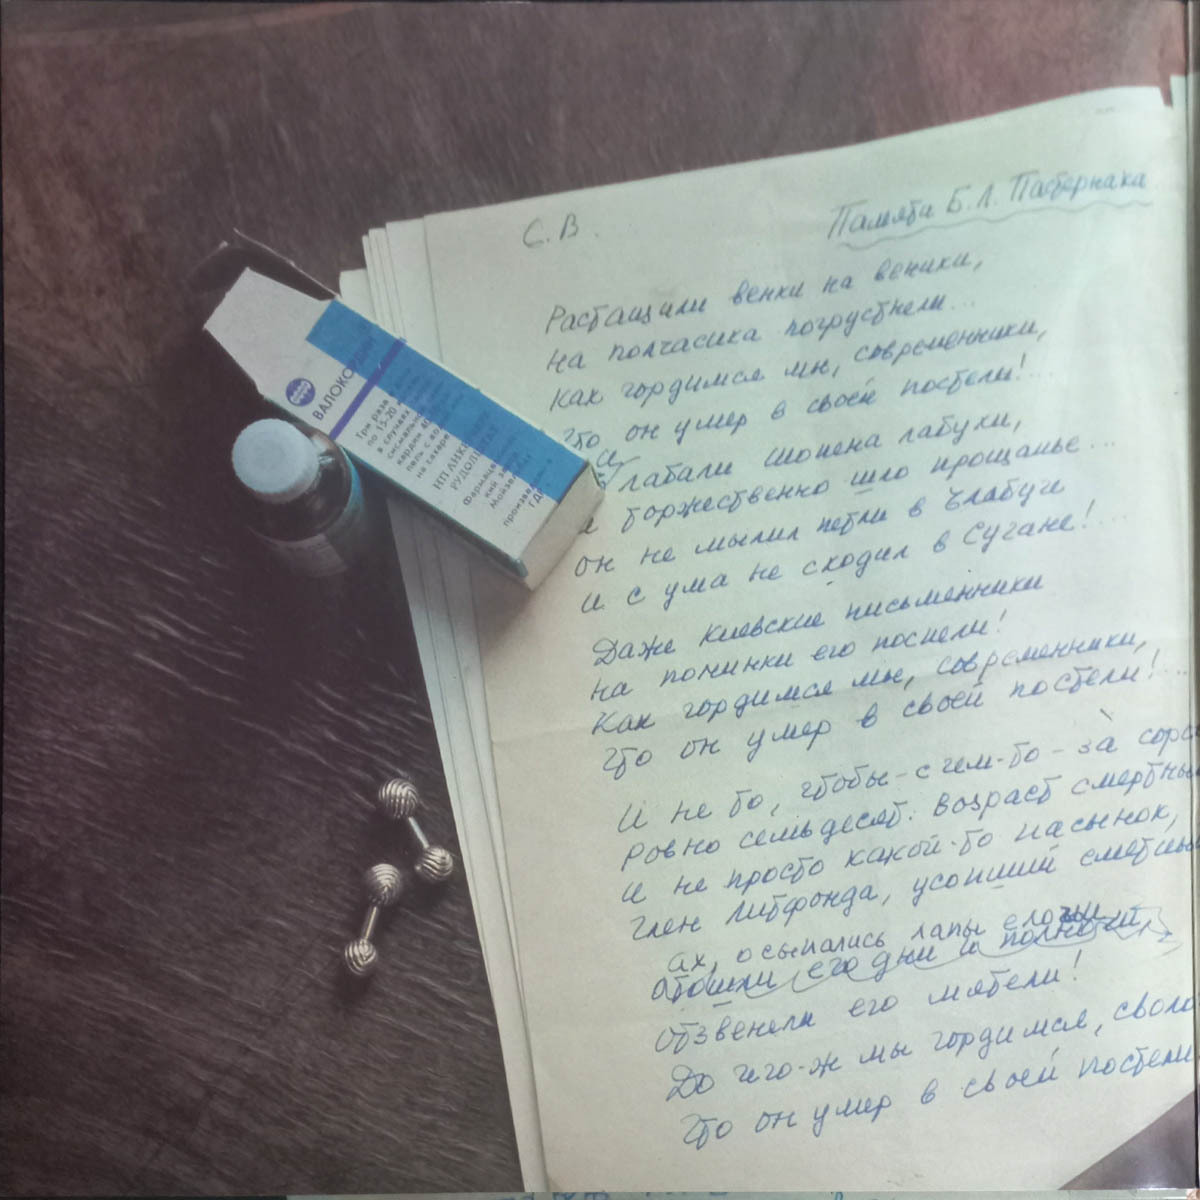 С. В.
Памяти Б. Л. Пастернака
Растащили венки на веники,
На полчасика погрустнели...
Как гордимся мы, современники,
Что он умер в своей постели!...
И
лабали Шопена лабухи,
И торжественно шло прощанье...
Он не мылил петли в Елабуге
И с ума не сходил в Сучане!...
Даже киевские письменники
На поминки его поспели!
Как гордимся мы, современники,
Что он умер в своей постели!...
И не то, чтобы - с чем-то - за
Ровно семьдесят. Возраст
И не просто какой-то пасынок,
Член Литфонда, усопший
Ах, осыпались лапы
Отошли его дни и
Отзвенели его мятели!
До чего-ж мы гордимся,
Что он умер в своей постели
ВАЛОКОРДИН
Три раза
по 15-20
в случаях
сильно
кардии 40
пель с во
на сахаре
НП АНК
РУДОЛЬШТАТ
Фармаце
кий за
Мойзе
произве
ГД